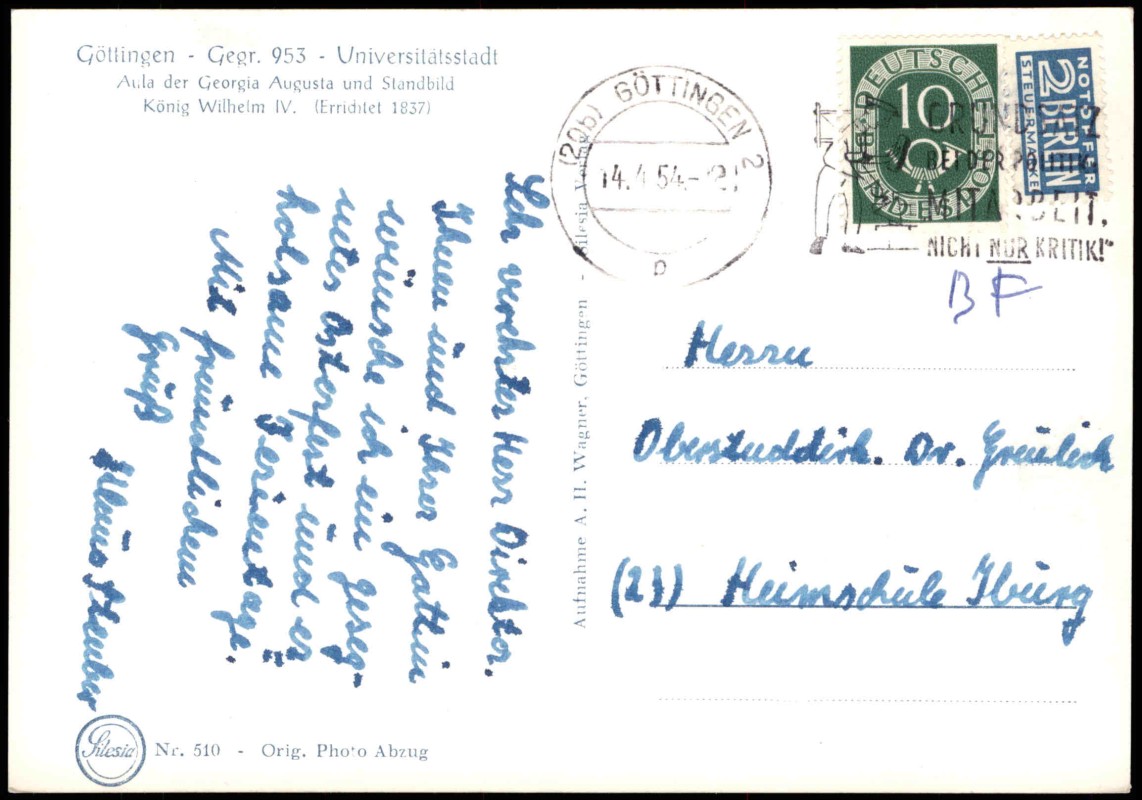 Göttingen - Gegr. 953 - Universitätsstadt
Aula der Georgia Augusta und Standbild
König Wilhelm IV. (Errichtet 1837)
Sehr verehrter Herr Direktor.
Ihnen und Ihrer Gattin
wünsche ich ein geseg-
netes Osterfest und er
holsame Ferientage.
Mit freundlichem
Gruß
Silesia
Nr. 510 - Orig. Photo Abzug
Aufnahme A. H. Wagner, Göttingen - Silesia Verlag
(20b) GÖTTINGEN 2
14.4.54
p
DEUTSCHE BUNDESPOST
10
NOTOPFER
2 BERLIN
STEUERMARKE
GRUNDSATZ
BEI DER POLITIK:
MITARBEIT,
NICHT NUR KRITIK!"
BF
Herrn
Oberstuddirk. Dr. Greulich
(23) Heimschule Iburg